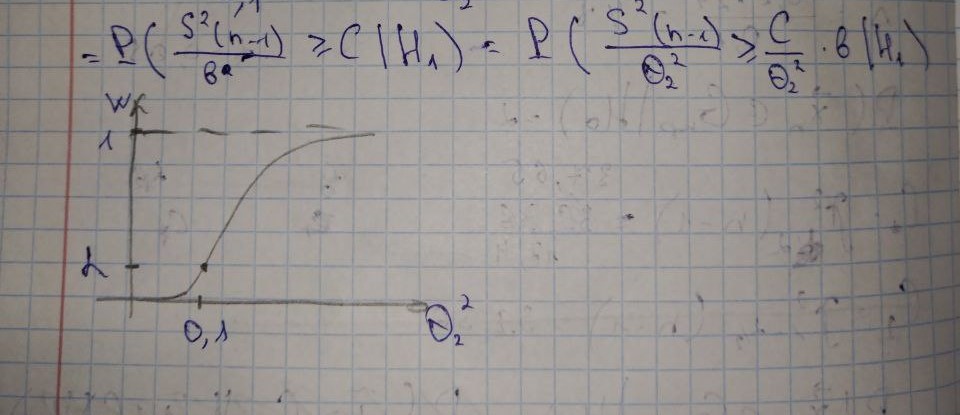 = P( S²(n-1) / 6 ≥ C | H₁ ) = P ( S²(n-1) / Θ₂² ≥ C / Θ₂² · 6 | H₁ )
W
1
α
0,1
Θ₂²